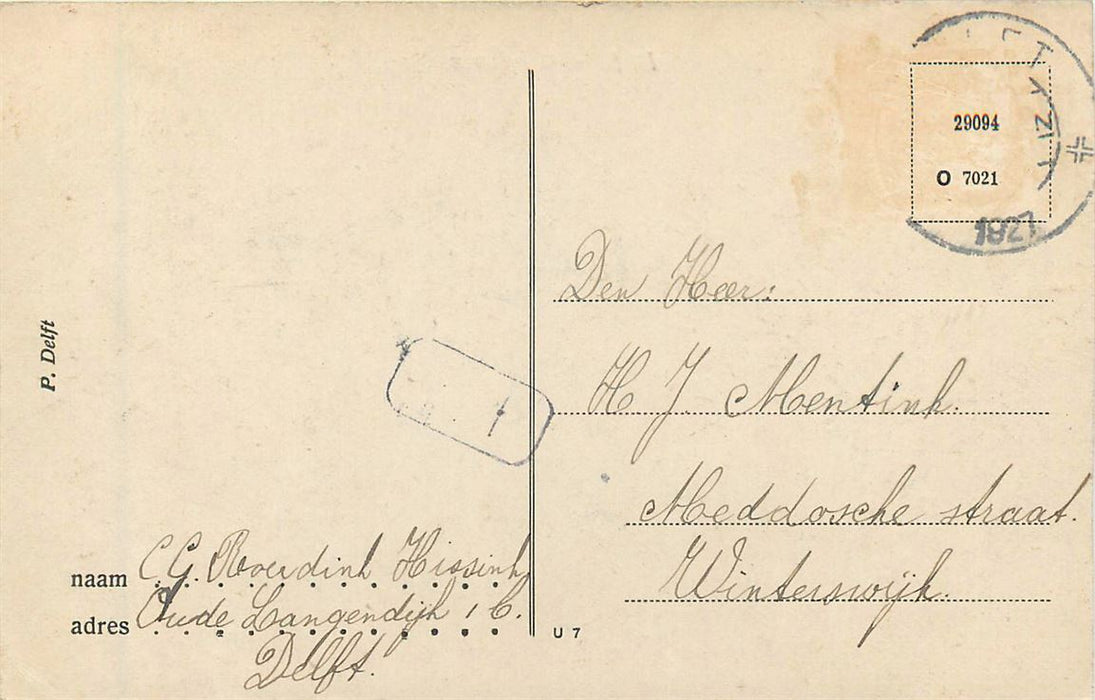 P. Delft
naam C. G. Roerdink Hissink
adres Oude Langendijk 1 C.
Delft.
U 7
29094
O 7021
1927
Den Heer:
H J. Mentink.
Meddosche straat.
Winterswijk.